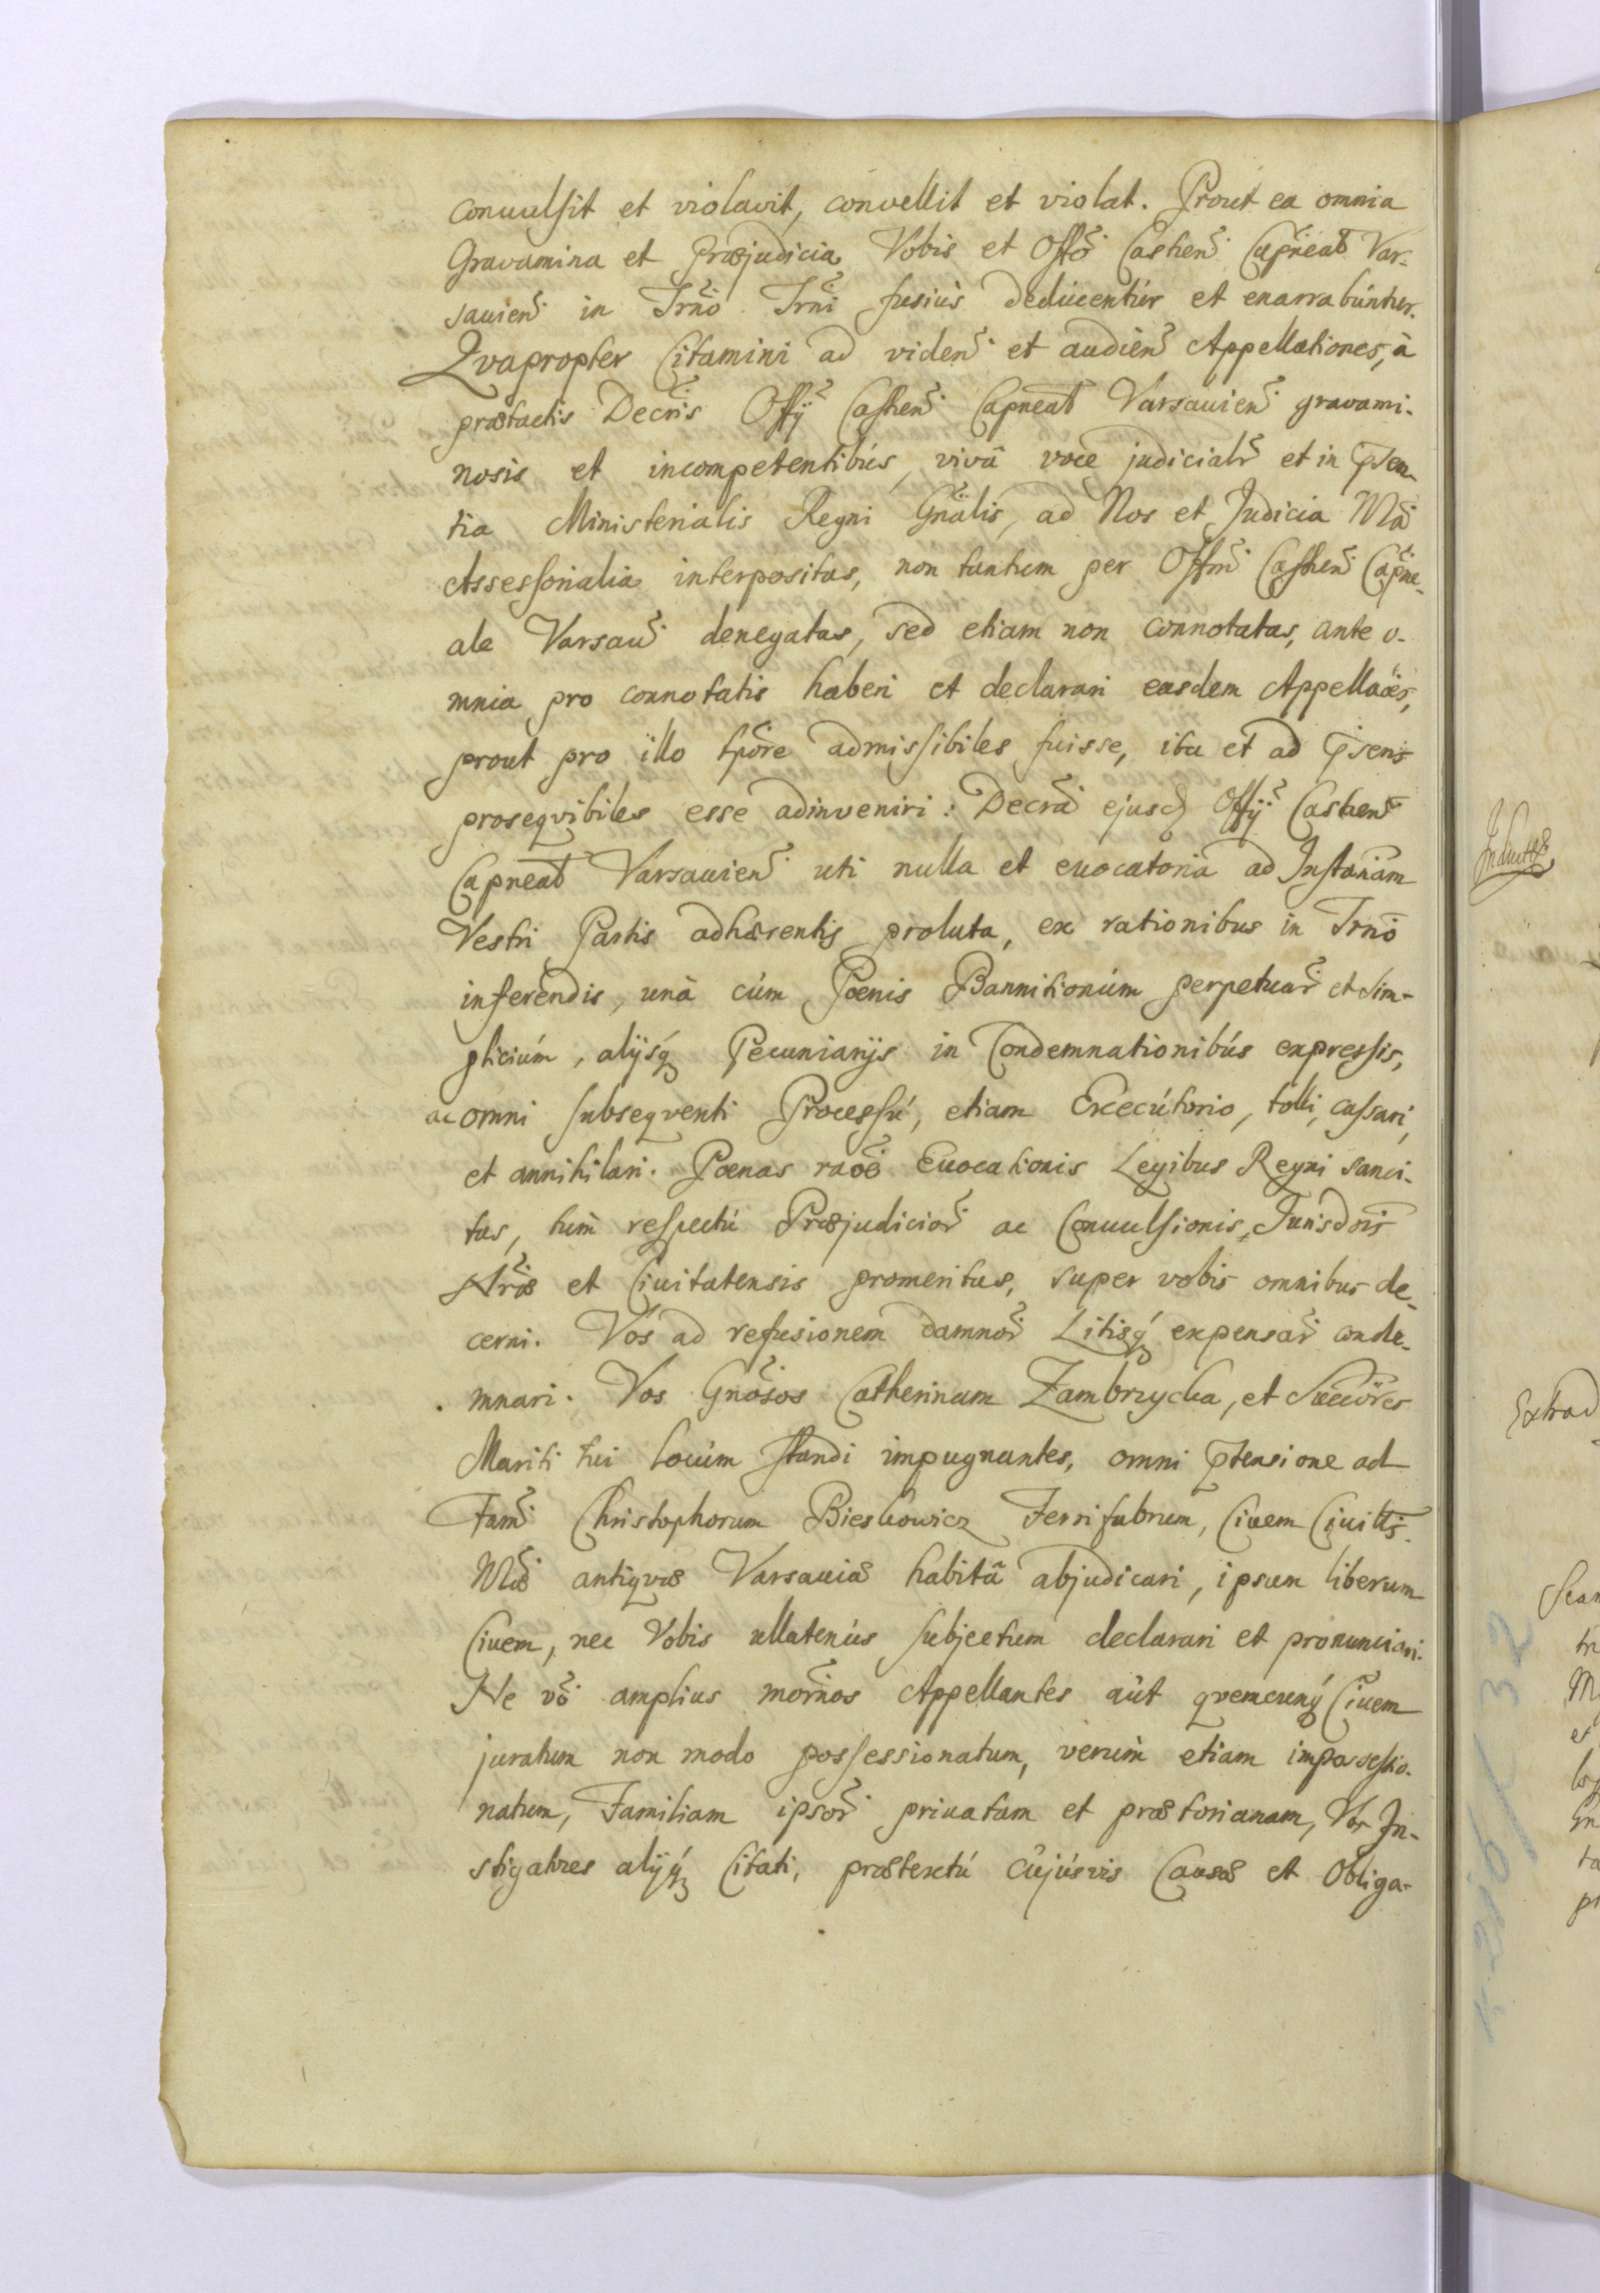 convulsit et violavit, convellit et violat. Prout ea omnia
Gravamina et Præjudicia Vobis et Offõ Castren̄ Capneal̄ Var-
savien̄ in Trn̄o Trn̄i fusiùs deducentùr et enarrabùntur.
Qvapropter Citamini ad viden̄ et audien̄ Appellationes, à
prætactis Decr̄is Offÿ Castren̄ Capneal̄ Varsavien̄ gravami-
nosis et incompetentibùs, vivâ voce judicialr̄ et in p̄sen-
tia Ministerialis Regni Gn̄alis, ad Nos et Judicia Nr̄a
Assessorialia interpositas, non tantum per Offm̄ Castren̄ Capne-
ale Varsav̄ denegatas, sed etiam non connotatas, ante o-
mnia pro connotatis haberi et declarari easdem Appellaões,
prout pro illo tp̄ore admissibiles fuisse, ita et ad p̄sens
proseqvibiles esse adinveniri: Decr̄a ejusd̄ Offÿ Castren̄
Capneal̄ Varsavien̄ uti nulla et evocatoria ad Instan̄am
Vestri Partis adhærentis prolata, ex rationibus in Trn̄o
inferendis, unà cùm Pœnis Bannitionùm perpetuar̄ et sim-
pliciùm, alijsq́ Pecuniarijs in Condemnationibùs expressis,
ac omni subseqventi Processù, etiam Execùtorio, tolli, cassari,
et annihilari. Pœnas raõe Evocationis Legibus Regni sanci-
tas, tùm respectù Præjudicior̄ ac Convulsionis, Jurisdoĩs
Nr̄æ et Civitatensis promeritas, super vobis omnibus de-
cerni. Vos ad refusionem damnor̄ Litisq́ expensar̄ conde-
mnari. Vos Gnōsos Catherinam Zambrzycka, et Succōres
Mariti tui locùm standi impugnantes, omni p̄tensione ad
Fam̄ Christophorum Bieskowicz Ferrifabrum, Civem Civit̄tis
Nr̄æ antiqvæ Varsaviæ habitâ abjudicari, ipsum liberum
Civem, nec Vobis ullatenùs subjectum declarari et pronunciari.
Ne vō amplius mōrnos Appellantes aùt qvemcunq́ Civem
juratum non modo possessionatum, verùm etiam impossessio-
natum, Familiam ipsor̄ privatam et prætorianam, Vos In-
stigatores alijq́ Citati, prætextù cùjùsvis Causæ et Obliga-